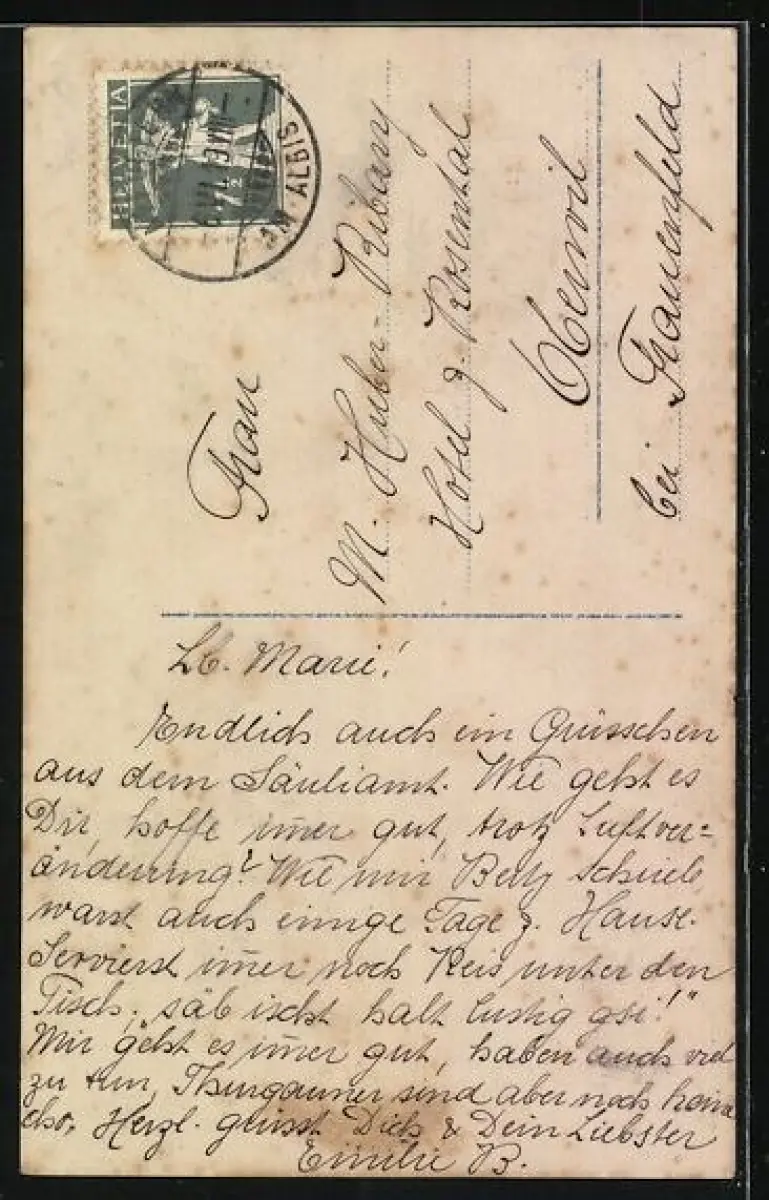 HELVETIA
7½
AM ALBIS
Frau
M. Huber-
Hotel z. Rosenthal
Oberwil
bei Frauenfeld
Lb. Marie!
Endlich auch ein Grüsschen
aus dem Säuliamt. Wie geht es
Dir, hoffe im̄er gut, trotz Luftver=
änderung? Wie mir Berty schrieb,
warst auch einige Tage z. Hause.
Servierst im̄er noch Reis unter den
Tisch, „säb ischt halt lustig gsi!"
Mir geht es im̄er gut, haben auch viel
zu tun, Thurgauner sind aber noch keine
cho. Herzl. grüsst Dich & Dein Liebster
Emilie B.